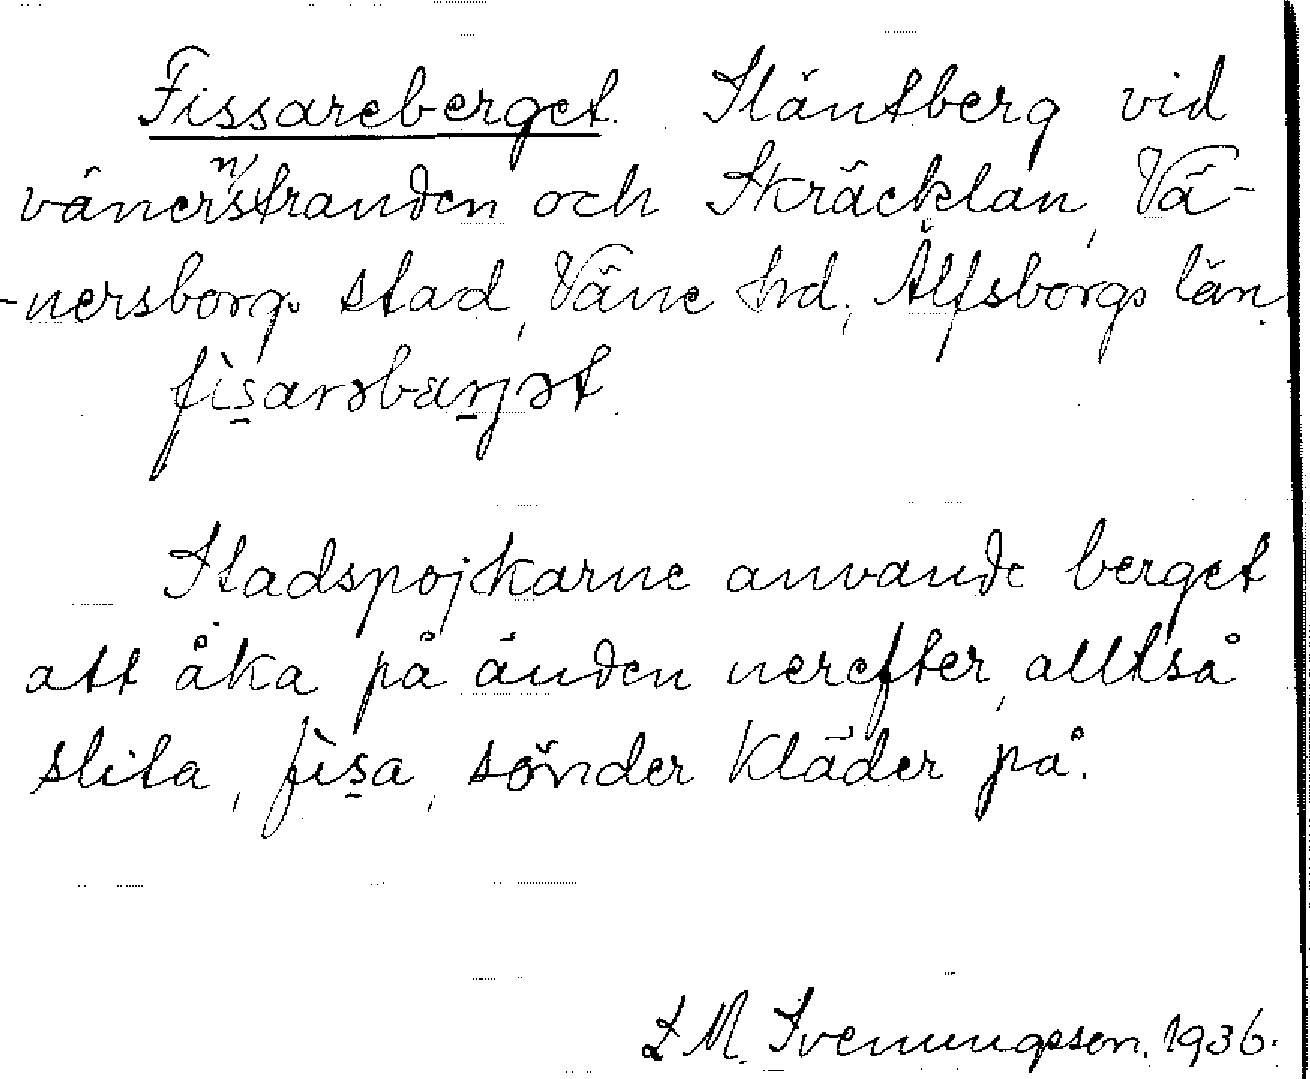 Fissareberget. Släntberg vid
vänernsstranden och Skräcklan, Vä-
-nersborgs stad, Väne hd, Älfsborgs län.
fìs̱arəbæṟjət.
Stadspojkarne använde berget
att åka på änden nerefter, alltså
slita, fìs̱a, sönder kläder på.
L M. Svenungsson. 1936.